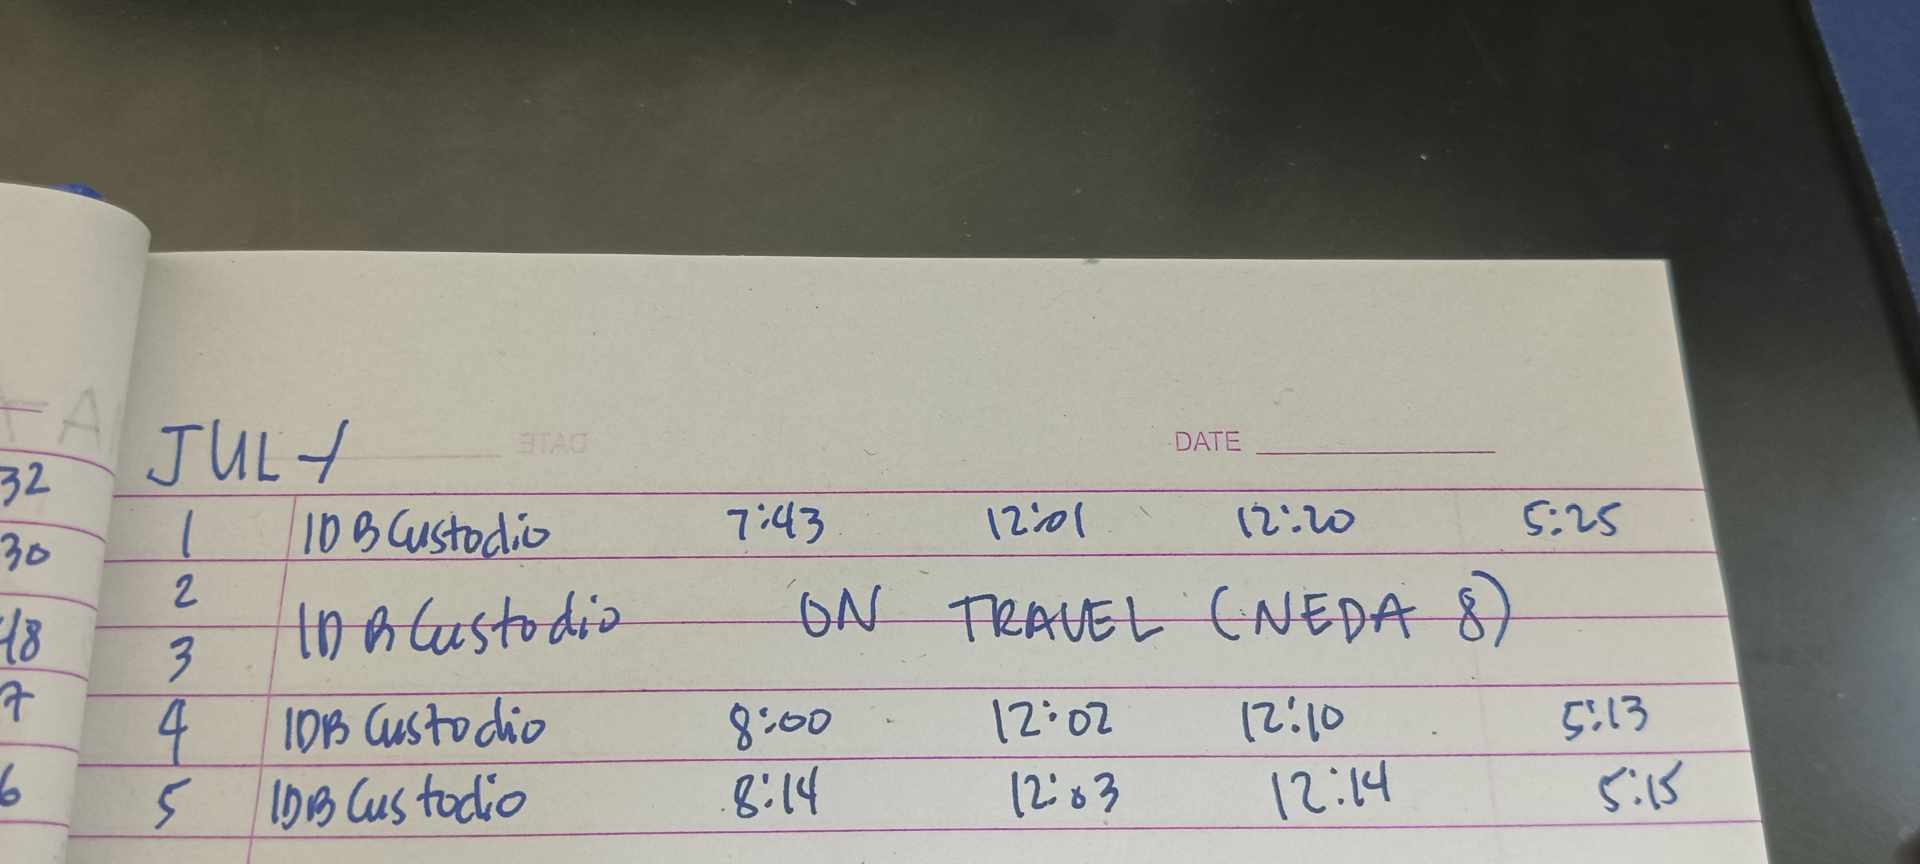 JULY
DATE
1 IDB Custodio 7:43 12:01 12:20 5:25
2
IDB Custodio ON TRAVEL (NEDA 8)
3
4 IDB Custodio 8:00 12:02 12:10 5:13
5 IDB Custodio 8:14 12:03 12:14 5:15
32
30
48
7
6